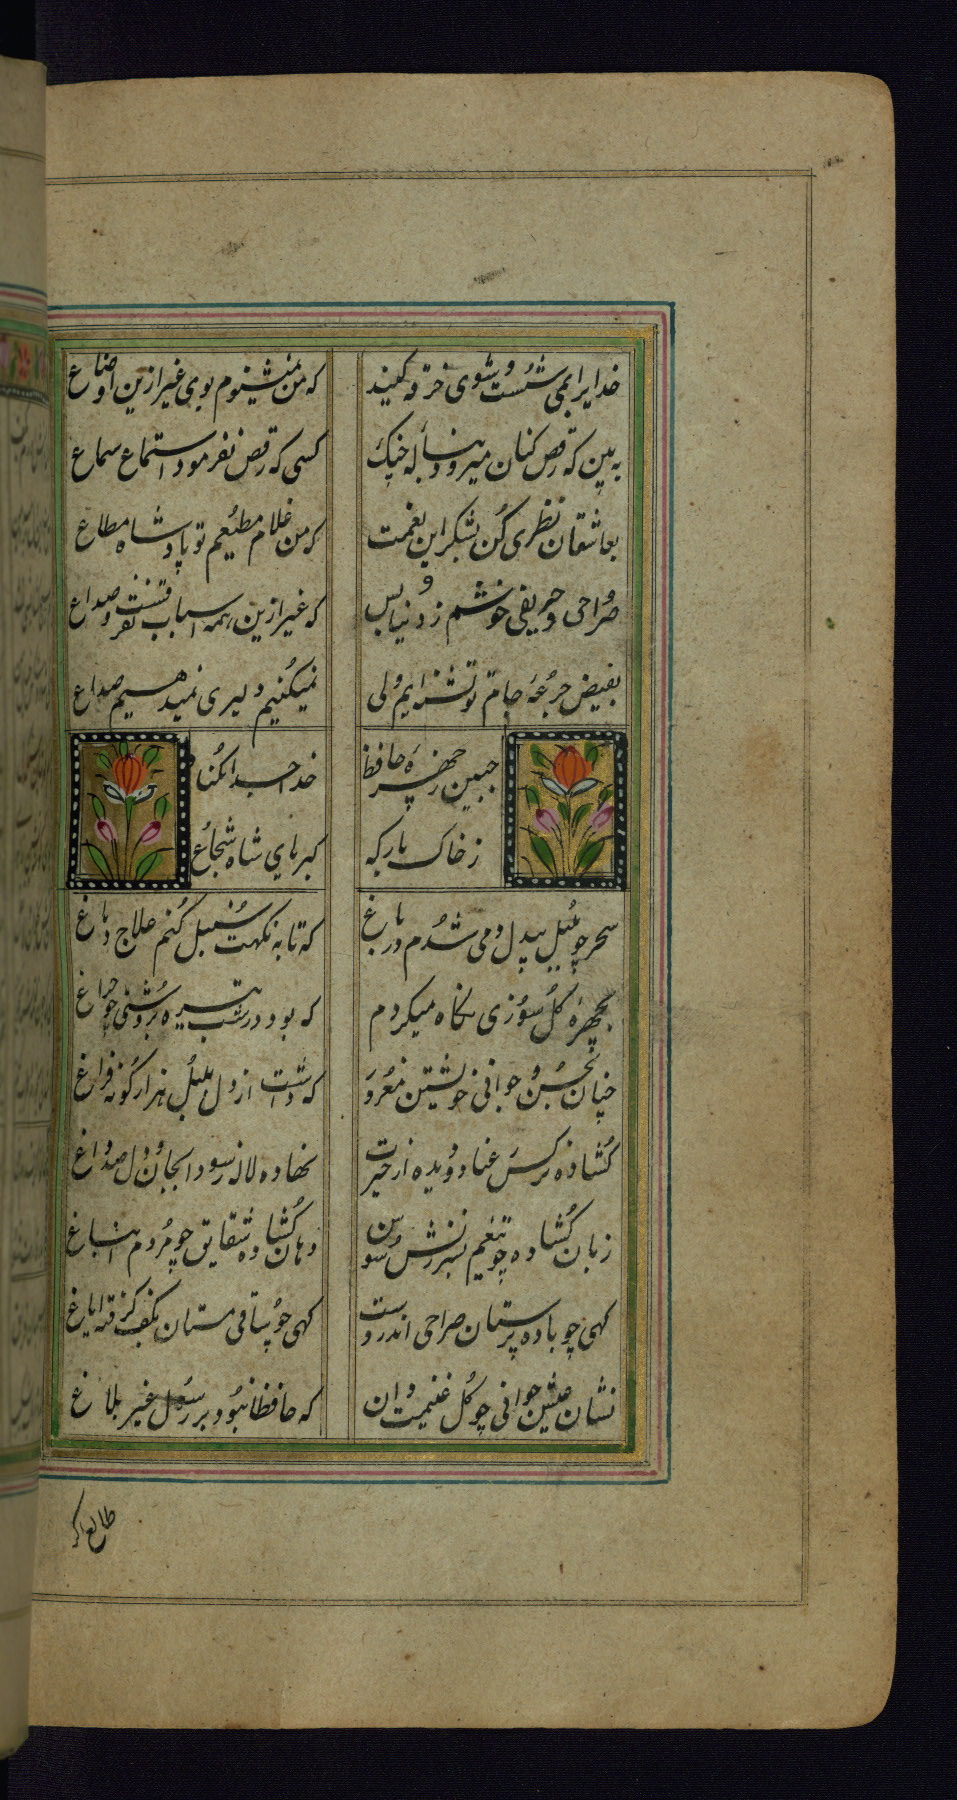 خدایرا بمی شست و شوی خرقه کنید
که من نمیشنوم بوی غیر ازین اوضاع
به بین که رقص کنان میرود بناله چنک
کسی که رقص نفرمود استماع سماع
بعاشقان نظری کن بشکر این نعمت
که من غلام مطیعم تو پادشاه مطاع
صراحی و حریفی خوشم ز دنیا بس
که غیر ازین همه اسباب تفرقست و صداع
بفیض جرعهٔ جام تو تشنه ایم ولی
نمیکنیم دلیری نمیدهیم صداع
جبین و چهرهٔ حافظ
خدا جدا مکناد
ز خاک بارکه
کبریای شاه شجاع
سحر چو بلبل بیدل دمی شدم در باغ
که تا به نکهت سنبل کنم علاج دماغ
بچهرهٔ کل سوری نکاه میکردم
که بود در شب تیره بروشنی چو چراغ
چنان بحسن و جوانی خویشتن مغرور
که داشت از دل بلبل هزار کونه فراغ
کشاده نرکس رعنا دو دیده از حیرت
نهاده لاله ز سودا بجان و دل صد داغ
زبان کشاده چو تیغم بسرزنش سوسن
دهان کشاده شقایق چو مردم ایغاغ
کهی چو باده پرستان صراحی اندر دست
کهی چو ساقی مستان بکف کرفته ایاغ
نشان عیش جوانی چو کل غنیمت دان
که حافظا نبود بر رسول غیر بلاغ
طالع اکر